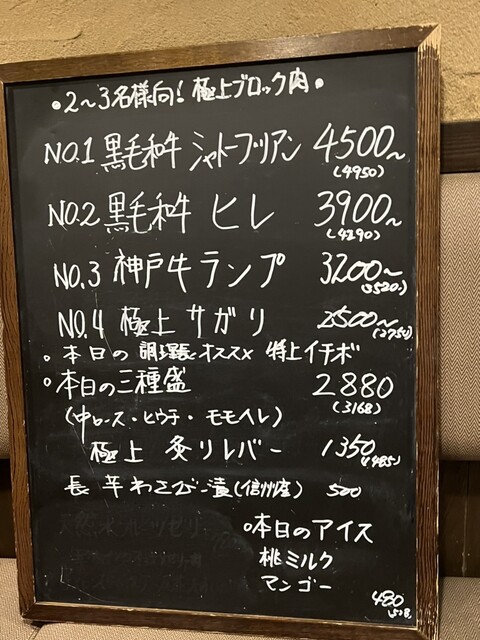 ・2〜3名様向！極上ブロック肉・
NO.1 黒毛和牛 シャトーブリアン 4500〜
(4950)
NO.2 黒毛和牛 ヒレ 3900〜
(4290)
NO.3 神戸牛ランプ 3200〜
(3520)
NO.4 極上 サガリ 2500〜
(2750)
○本日の 調理長オススメ 特上イチボ
○本日の三種盛 2880
(3168)
(中ロース・ヒウチ・モモヘレ)
極上 炙りレバー 1350
(1485)
長芋わさび漬(信州産) 500
○本日のアイス
桃ミルク
マンゴー
480
528